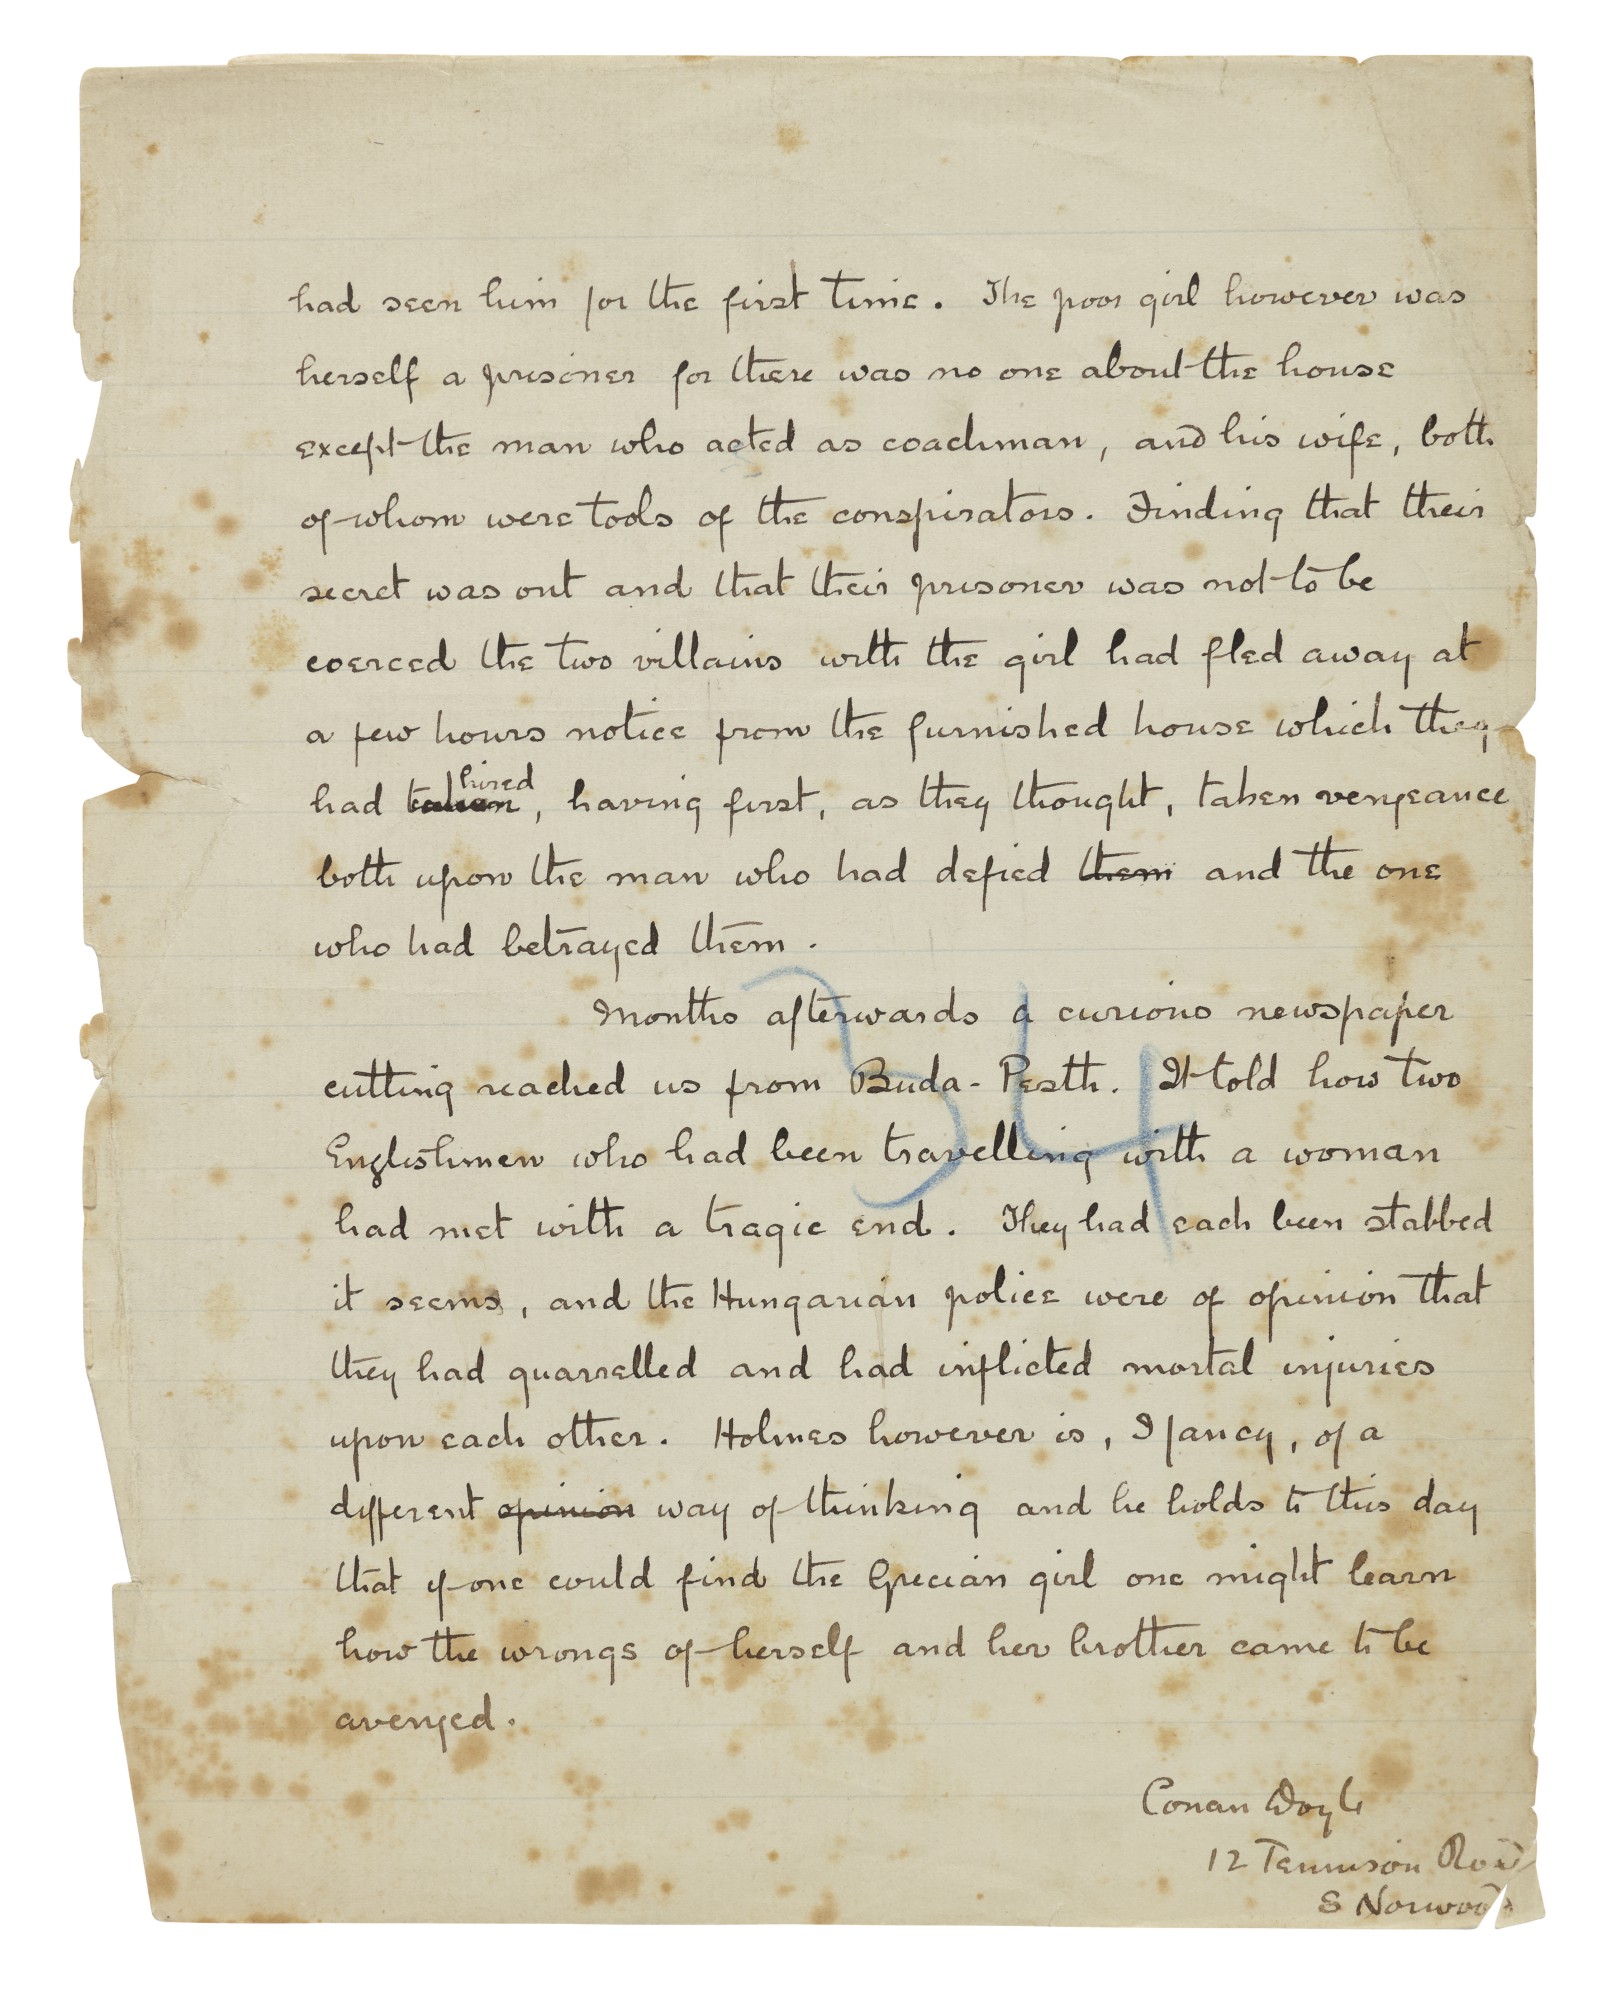 had seen him for the first time. The poor girl however was
herself a prisoner for there was no one about the house
except the man who acted as coachman, and his wife, both
of whom were tools of the conspirators. Finding that their
secret was out and that their prisoner was not to be
coerced the two villains with the girl had fled away at
a few hours notice from the furnished house which they
hired
had taken, having first, as they thought, taken vengeance
both upon the man who had defied them and the one
who had betrayed them.
Months afterwards a curious newspaper
cutting reached us from Buda-Pesth. It told how two
Englishmen who had been travelling with a woman
had met with a tragic end. They had each been stabbed
it seems, and the Hungarian police were of opinion that
they had quarrelled and had inflicted mortal injuries
upon each other. Holmes however is, I fancy, of a
different opinion way of thinking and he holds to this day
that if one could find the Grecian girl one might learn
how the wrongs of herself and her brother came to be
avenged.
34
Conan Doyle
12 Tennison Road
S Norwood